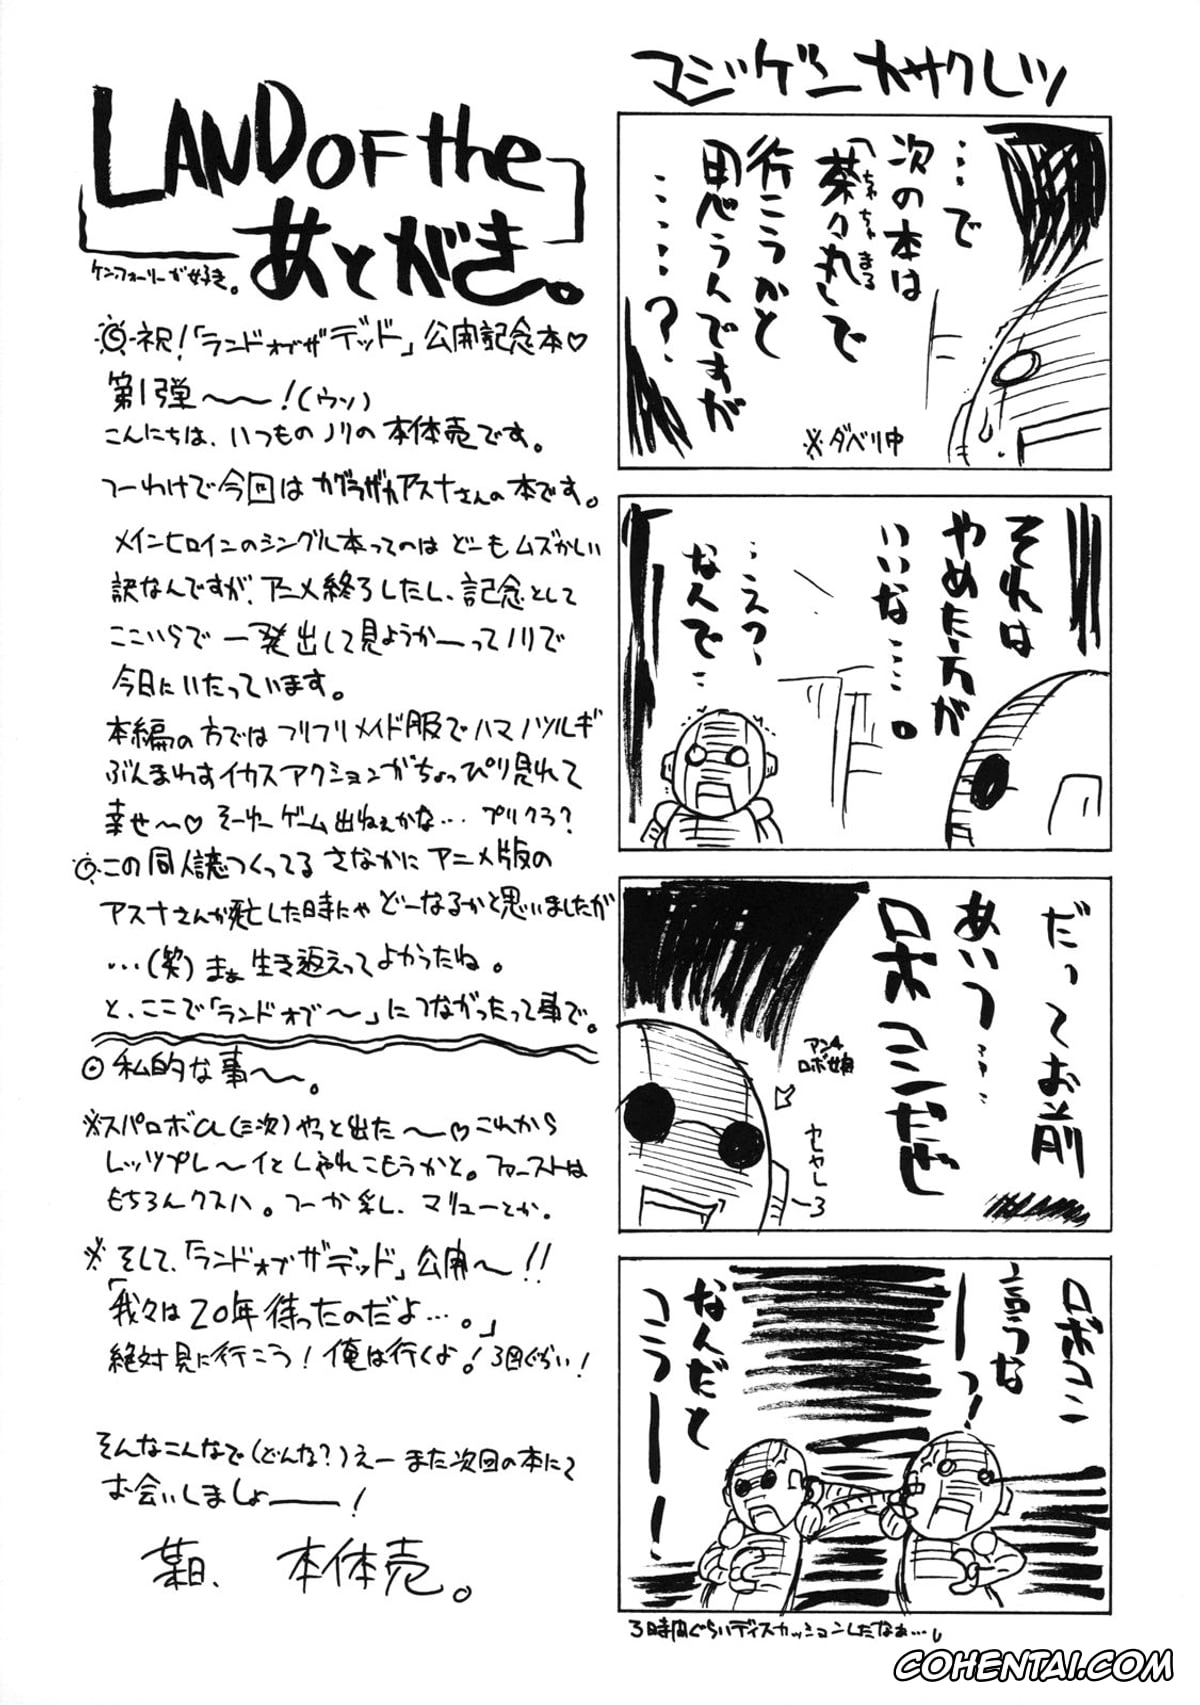 LAND OF the
あとがき。
ケン・フォーリーが好き。
祝!「ランドオブザデッド」公開記念本♡
第1弾〜〜!(ウソ)
こんにちは、いつものノリの本体売です。
つーわけで今回はカグラザカアスナさんの本です。
メインヒロインのシングル本ってのはどーもムズかしい
訳なんですが、アニメ終ろしたし、記念として
ここいらで一発出して見ようかーってノリで
今日にいたっています。
本編の方ではフリフリメイド服でハマノツルギ
ぶんまわすイカスアクションがちょっぴり見れて
幸せ〜♡ そーいやーゲーム出ねぇかな… プリクラ?
この同人誌つくってるさなかにアニメ版の
アスナさんが死亡した時にゃどーなるかと思いましたが
…(笑)まぁ生き返えってよかったね。
と、ここで「ランドオブ〜」につながったって事で。
◎私的な事〜〜。
※スパロボα(三次)やっと出た〜〜♡これから
レッツプレ〜イとしゃれこもうかと。ファーストは
もちろんクスハ。つーか乳し、マリューとか。
※そして、「ランドオブザデッド」公開〜!!
「我々は20年待ったのだよ…。」
絶対見に行こう!俺は行くよ!3回ぐらい!
そんなこんなで(どんな?)えーまた次回の本にて
お会いしましょーー!
某日、 本体売。
マジゲンカサクレツ
…で
次の本は
「茶々丸」で
ちゃちゃまる
行こうかと
思うんですが
……?
※ダベリ中
それは
やめた方が
いいな…。
…えっ、
なんで…
だってお前
あいつ…
ロボコンだぜ
アンチ
ロボ娘
ロボコン
言うな
ーーっ!
なんだと
コラーー!
3時間ぐらいディスカッションしたなぁ…。
COHENTAI.COM